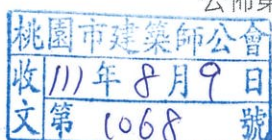 公佈第
桃園市建築師公會
收111年8月9日
文第1068號